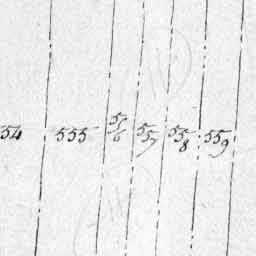 54 555 556 557 558 559